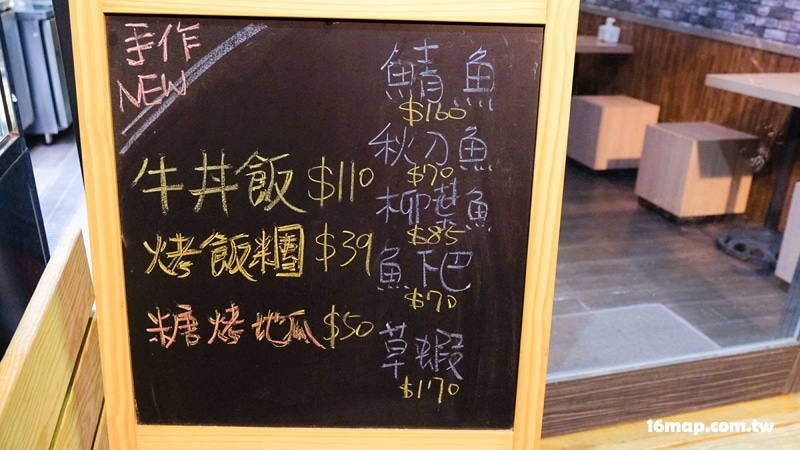 手作
NEW
牛丼飯 $110
烤飯糰 $39
糖烤地瓜 $50
鯖魚
$160
秋刀魚
$70
柳葉魚
$85
魚下巴
$70
草蝦
$170
16map.com.tw